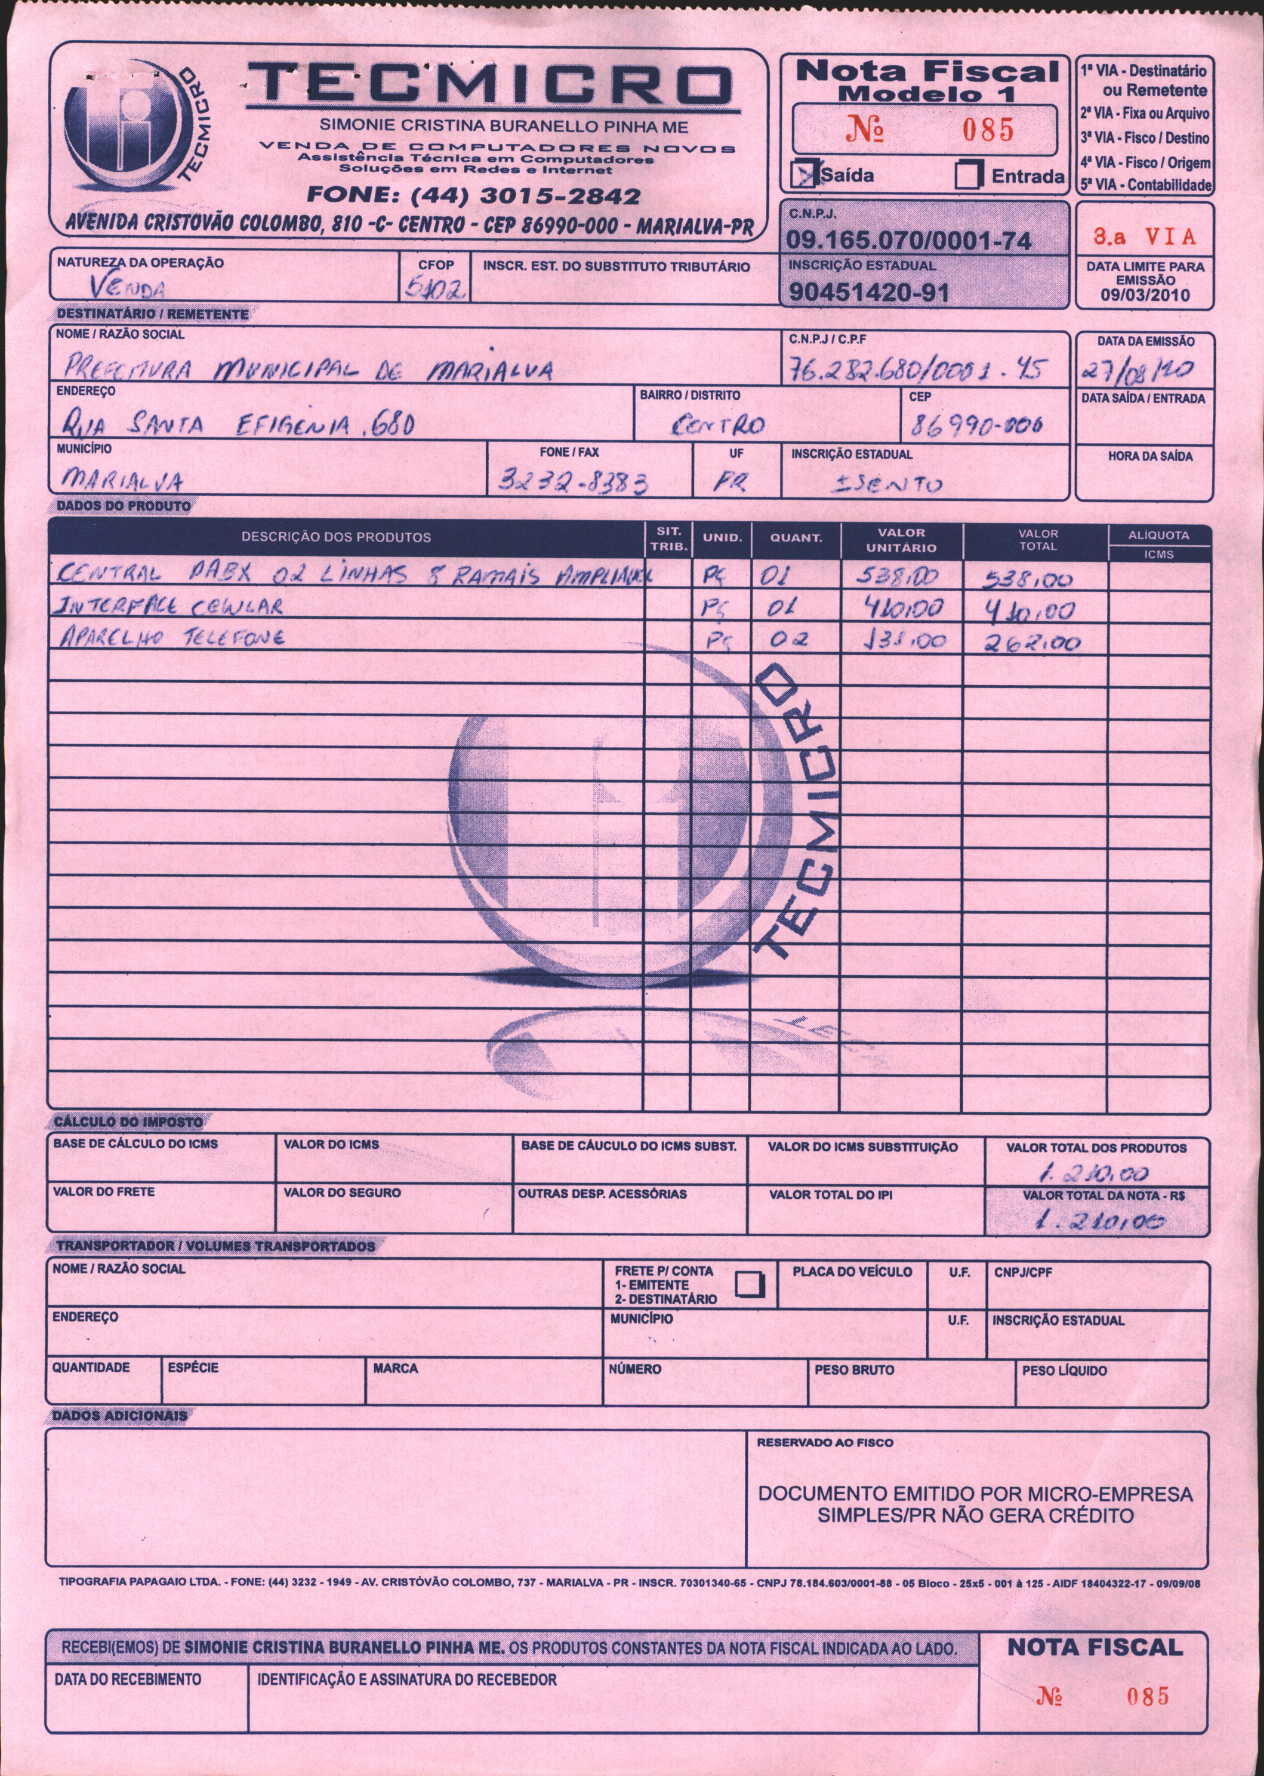 TECMICRO
TECMICRO
SIMONIE CRISTINA BURANELLO PINHA ME
VENDA DE COMPUTADORES NOVOS
Assistência Técnica em Computadores
Soluções em Redes e Internet
FONE: (44) 3015-2842
AVENIDA CRISTOVÃO COLOMBO, 810 -C- CENTRO - CEP 86990-000 - MARIALVA-PR
Nota Fiscal
Modelo 1
Nº 085
X Saída Entrada
1ª VIA - Destinatário
ou Remetente
2ª VIA - Fixa ou Arquivo
3ª VIA - Fisco / Destino
4ª VIA - Fisco / Origem
5ª VIA - Contabilidade
C.N.P.J.
09.165.070/0001-74
INSCRIÇÃO ESTADUAL
90451420-91
3.a VIA
DATA LIMITE PARA
EMISSÃO
09/03/2010
NATUREZA DA OPERAÇÃO
VENDA
CFOP
5102
INSCR. EST. DO SUBSTITUTO TRIBUTÁRIO
DESTINATÁRIO / REMETENTE
NOME / RAZÃO SOCIAL
PREFEITURA MUNICIPAL DE MARIALVA
C.N.P.J / C.P.F
76.282.680/0001-45
DATA DA EMISSÃO
27/01/10
ENDEREÇO
RUA SANTA EFIGENIA, 680
BAIRRO / DISTRITO
CENTRO
CEP
86990-000
DATA SAÍDA / ENTRADA
MUNICÍPIO
MARIALVA
FONE / FAX
3232-8383
UF
PR
INSCRIÇÃO ESTADUAL
ISENTO
HORA DA SAÍDA
DADOS DO PRODUTO
DESCRIÇÃO DOS PRODUTOS SIT. TRIB. UNID. QUANT. VALOR UNITÁRIO VALOR TOTAL ALÍQUOTA ICMS
CENTRAL PABX 02 LINHAS 8 RAMAIS AMPLIAVEL PÇ 01 538,00 538,00
INTERFACE CELULAR PÇ 01 410,00 410,00
APARELHO TELEFONE PÇ 02 131,00 262,00
TECMICRO
CÁLCULO DO IMPOSTO
BASE DE CÁLCULO DO ICMS
VALOR DO ICMS
BASE DE CÁUCULO DO ICMS SUBST.
VALOR DO ICMS SUBSTITUIÇÃO
VALOR TOTAL DOS PRODUTOS
1.210,00
VALOR DO FRETE
VALOR DO SEGURO
OUTRAS DESP. ACESSÓRIAS
VALOR TOTAL DO IPI
VALOR TOTAL DA NOTA - R$
1.210,00
TRANSPORTADOR / VOLUMES TRANSPORTADOS
NOME / RAZÃO SOCIAL
FRETE P/ CONTA
1- EMITENTE
2- DESTINATÁRIO
PLACA DO VEÍCULO
U.F.
CNPJ/CPF
ENDEREÇO
MUNICÍPIO
U.F.
INSCRIÇÃO ESTADUAL
QUANTIDADE
ESPÉCIE
MARCA
NÚMERO
PESO BRUTO
PESO LÍQUIDO
DADOS ADICIONAIS
RESERVADO AO FISCO
DOCUMENTO EMITIDO POR MICRO-EMPRESA
SIMPLES/PR NÃO GERA CRÉDITO
TIPOGRAFIA PAPAGAIO LTDA. - FONE: (44) 3232 - 1949 - AV. CRISTÓVÃO COLOMBO, 737 - MARIALVA - PR - INSCR. 70301340-65 - CNPJ 78.184.603/0001-88 - 05 Bloco - 25x5 - 001 à 125 - AIDF 18404322-17 - 09/09/08
RECEBI(EMOS) DE SIMONIE CRISTINA BURANELLO PINHA ME. OS PRODUTOS CONSTANTES DA NOTA FISCAL INDICADA AO LADO.
DATA DO RECEBIMENTO
IDENTIFICAÇÃO E ASSINATURA DO RECEBEDOR
NOTA FISCAL
Nº 085